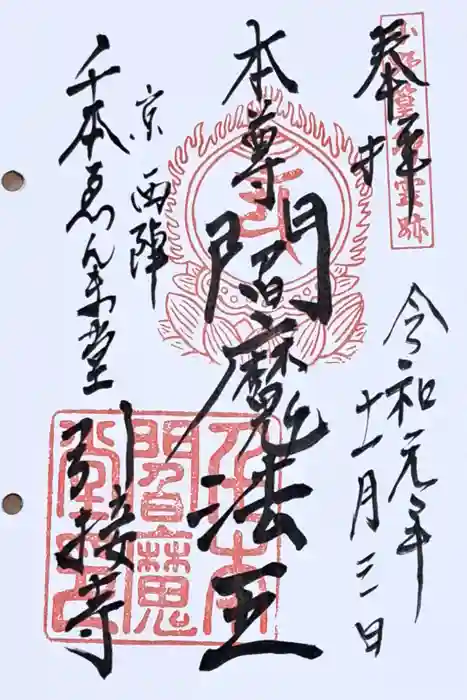 奉拝
令和元年
十一月三日
本尊
閻魔法王
京 西陣
千本ゑんま堂
引接寺